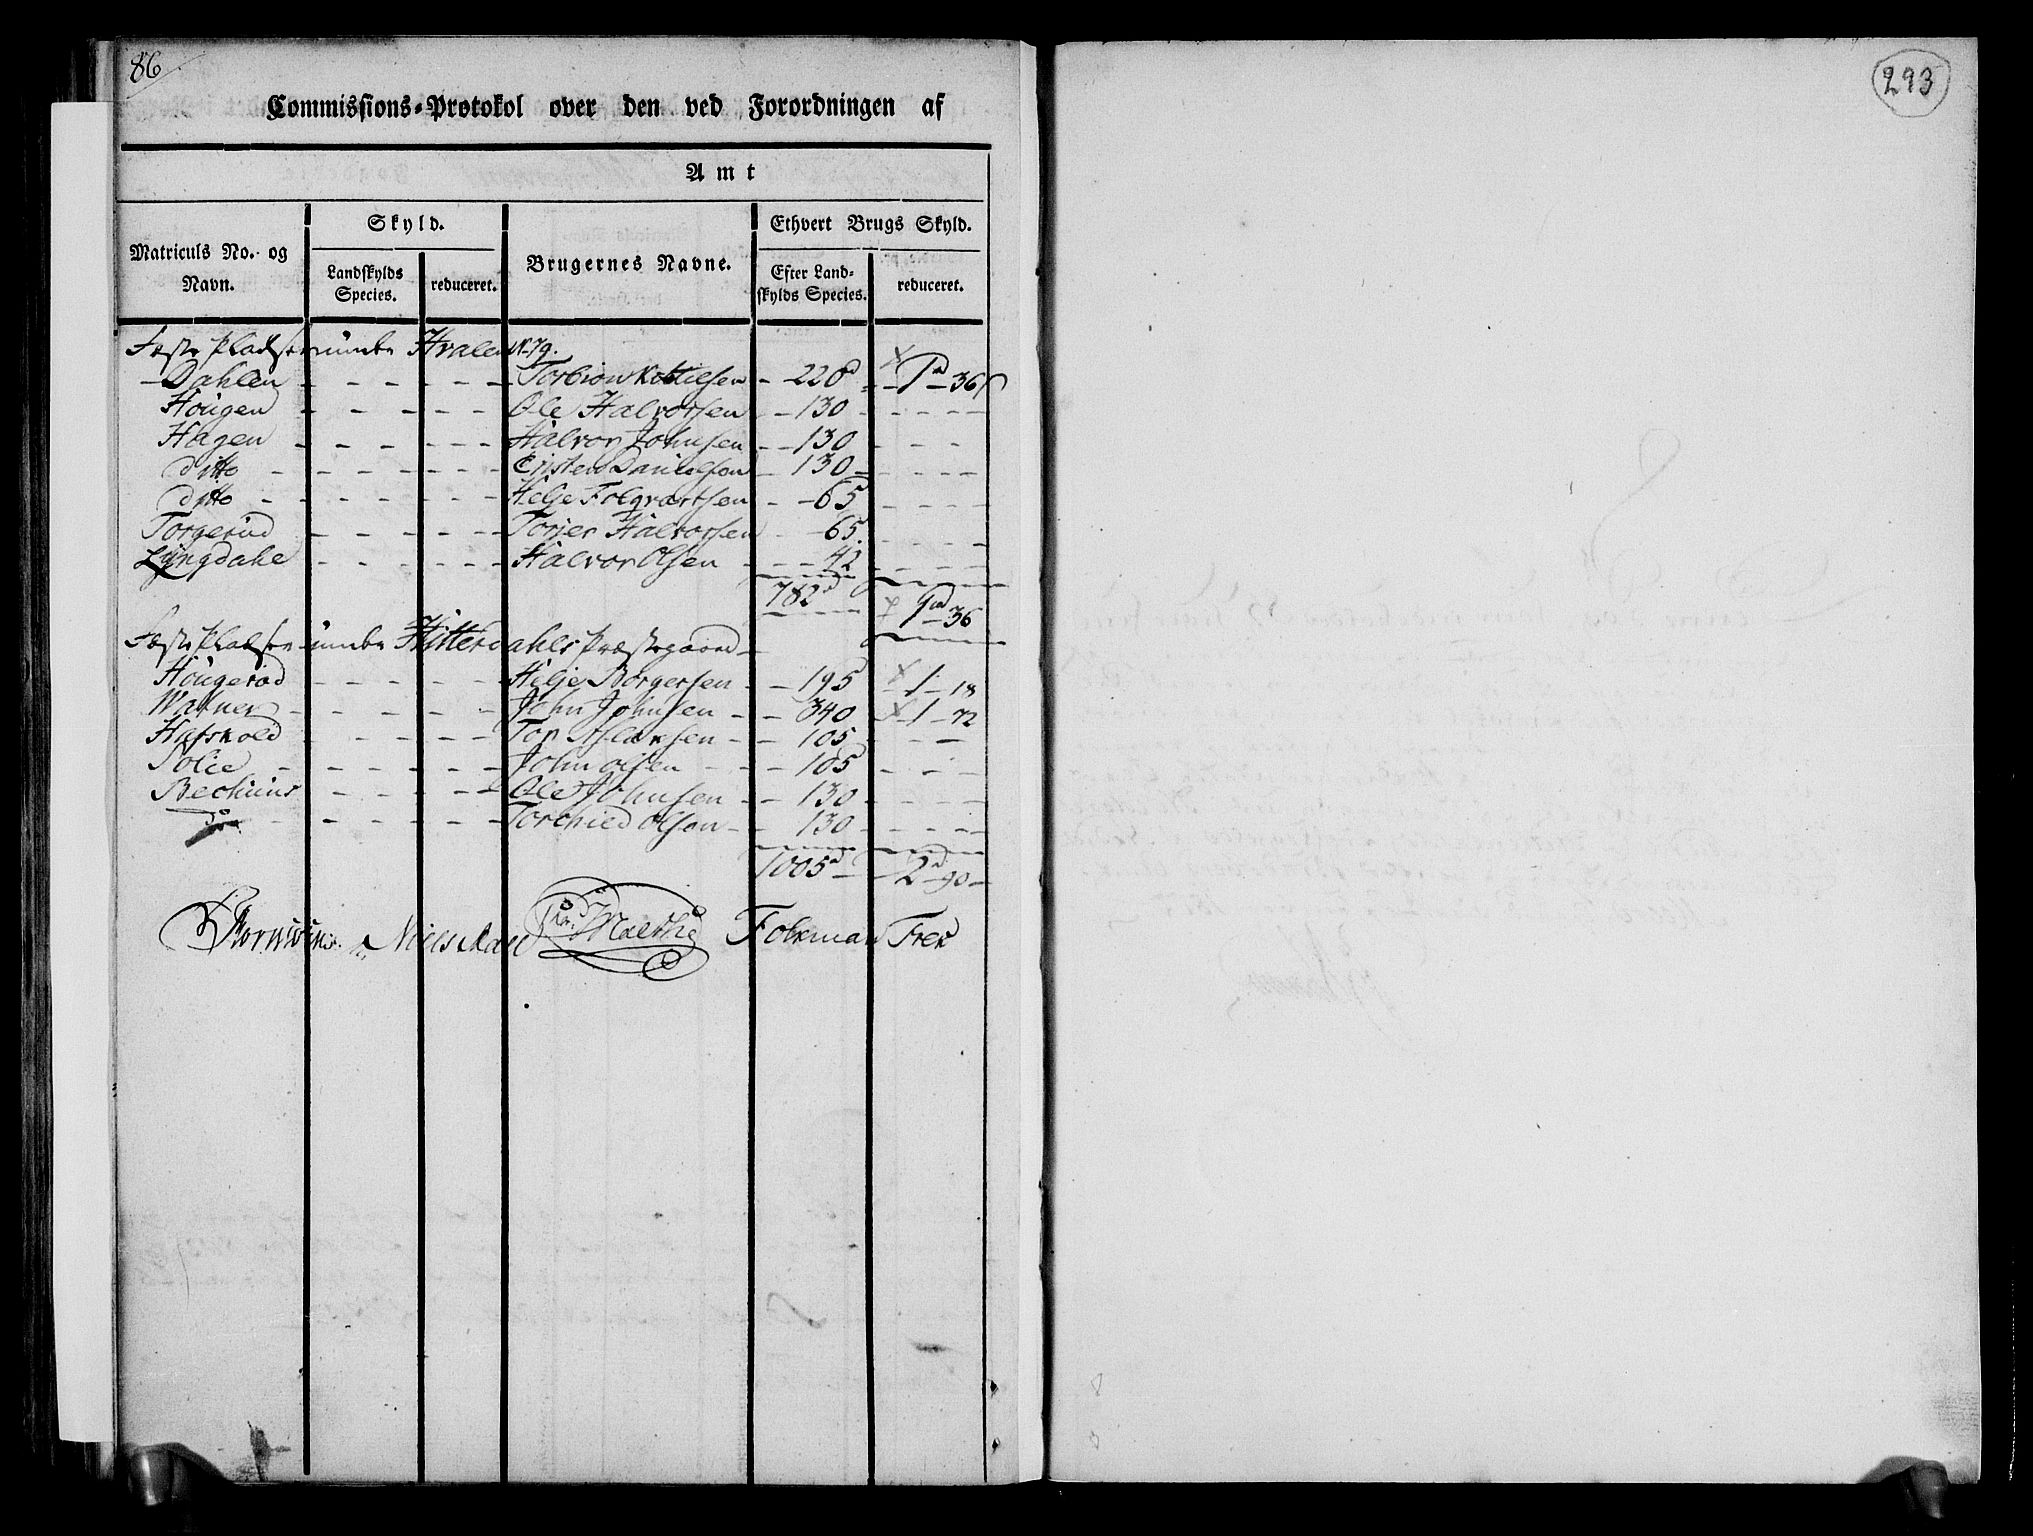 86
Commissions-Protokol over den ved Forordningen af
Amt
Matriculs No. og Navn.
Skyld.
Landskylds Species.
reduceret.
Brugernes Navne.
Ethvert Brugs Skyld.
Efter Landskylds Species.
reduceret.
Hvalen N. 79.
Dahlen Torbiøn Kittilsen 220 1 36
Hougen Ole Halvorsen 130
Hagen Halvor Johnsen 130
ditto Cristen Danielsen 130
ditto Helje Folqvartsen 65
Torgerud Torjer Halvorsen 65
Lyngdahl Halvor Olsen 42
782 1 36
Hitterdahls Præstegaard
Hougerød Helje Borgersen 195 1 18
John Johnsen 340 1 72
Hafskold Tor Aslaksen 105
Solie John Olsen 105
Bechuus Ole Johnsen 130
Torchild Olsen 130
1005 2 90
Niels Folkman Trek
293